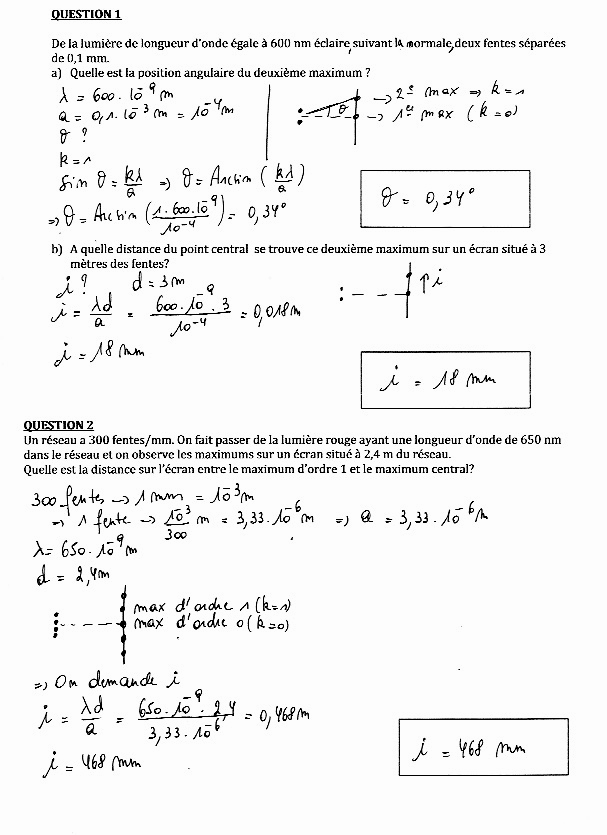 QUESTION 1
De la lumière de longueur d'onde égale à 600 nm éclaire, suivant la normale, deux fentes séparées
de 0,1 mm.
a) Quelle est la position angulaire du deuxième maximum ?
λ = 600 . 10⁻⁹ m
a = 0,1 . 10⁻³ m = 10⁻⁴ m
θ ?
k = 1
θ
→ 2ᵉ max ⇒ k = 1
→ 1ᵉʳ max (k = 0)
Sin θ = kλ/a ⇒ θ = Arcsin (kλ/a)
⇒ θ = Arcsin (1 . 600 . 10⁻⁹/10⁻⁴) = 0,34°
θ = 0,34°
b) A quelle distance du point central se trouve ce deuxième maximum sur un écran situé à 3
mètres des fentes?
i ? d = 3m
i = λd/a = 600 . 10⁻⁹ . 3/10⁻⁴ = 0,018 m
↑ i
i = 18 mm
i = 18 mm
QUESTION 2
Un réseau a 300 fentes/mm. On fait passer de la lumière rouge ayant une longueur d'onde de 650 nm
dans le réseau et on observe les maximums sur un écran situé à 2,4 m du réseau.
Quelle est la distance sur l'écran entre le maximum d'ordre 1 et le maximum central?
300 fentes → 1 mm = 10⁻³ m
→ 1 fente → 10⁻³/300 m = 3,33 . 10⁻⁶ m ⇒ a = 3,33 . 10⁻⁶ m
λ = 650 . 10⁻⁹ m
d = 2,4m
max d'ordre 1 (k=1)
max d'ordre 0 (k=0)
⇒ On demande i
i = λd/a = 650 . 10⁻⁹ . 2,4/3,33 . 10⁻⁶ = 0,468 m
i = 468 mm
i = 468 mm